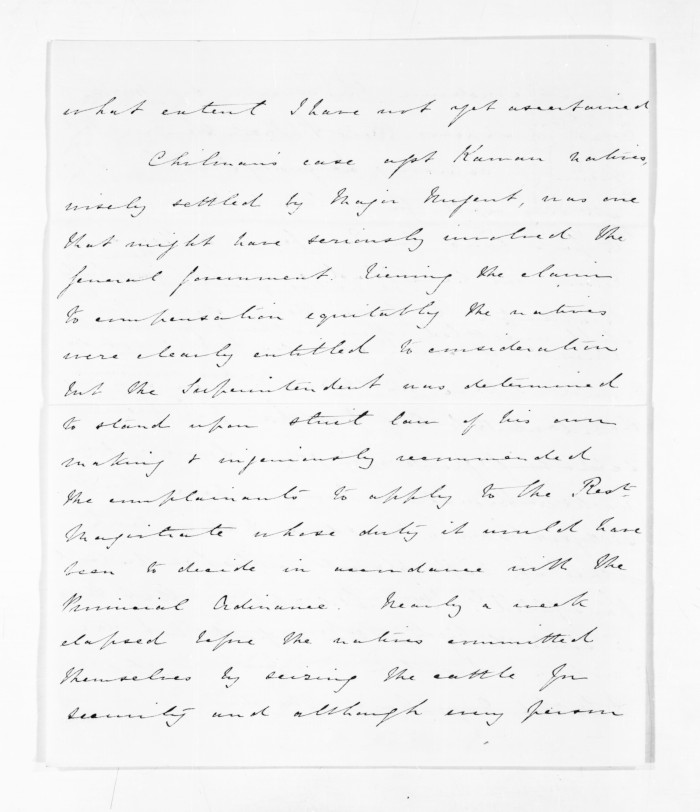 what extent I have not yet ascertained
Chilman's case agst Kawau natives,
wisely settled by Major Nugent, was one
that might have seriously involved the
General Government. Viewing the claim
to compensation equitably the natives
were clearly entitled to consideration
but the Superintendent was determined
to stand upon strict law of his own
making & ingeniously recommended
the complainants to apply to the Rest.
Magistrate whose duty it would have
been to decide in accordance with the
Provincial Ordinance. Nearly a week
elapsed before the natives committed
themselves by seizing the cattle for
security and although every person